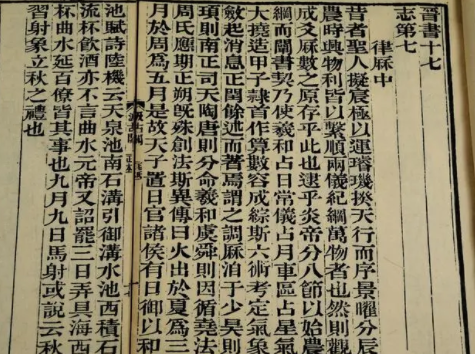 晉書十七
志第七
律厤中
昔者聖人擬宸極以運璿璣揆天行而序景曜分辰
農時興物利皆以繫順兩儀紀綱萬物者也然則觀
成爻厤數之原存乎此也逮乎炎帝分八節以始農
綱而闡書契乃使羲和占日常儀占月車區占星氣
大撓造甲子隸首作算數容成綜斯六術考定氣象
斂起消息正閏餘述而著焉謂之調厤洎于少昊則
頊則南正司天陶唐則分命羲和虞舜則因循堯法
周氏應期正朔旣殊創法斯異傳曰火出於夏爲三
月於周爲五月是故天子置日官諸侯有日御以和
池賦詩陸機云天泉池南石溝引御溝水池西積石
流杯飲酒亦不言曲水元帝又詔罷三日弄具海西
杯曲水延百僚皆其事也九月九日馬射或說云秋
習射象立秋之禮也